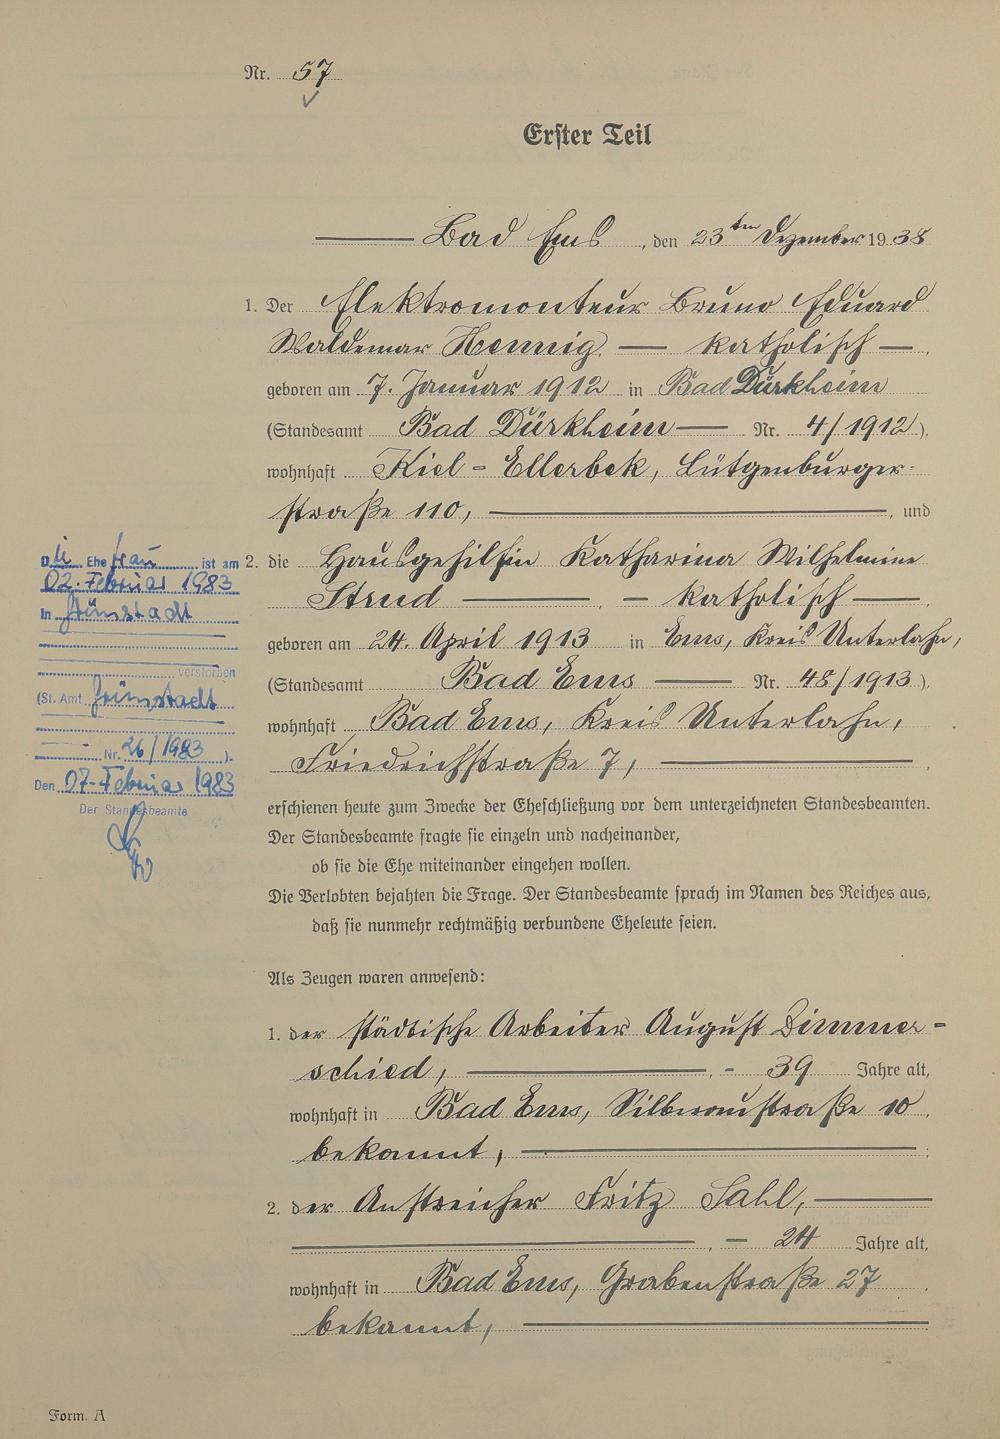 Nr. 57
Erster Teil
Bad Ems, den 23ten Dezember 1938
1. Der Elektromonteur Bruno Eduard
Waldemar Hennig, — katholisch —,
geboren am 7. Januar 1912 in Bad Dürkheim
(Standesamt Bad Dürkheim — Nr. 4/1912),
wohnhaft Kiel-Ellerbek, Lütgenburger-
straße 110, und
2. die Hausgehilfin Katharina Wilhelmine
Strud —, — katholisch —,
geboren am 24. April 1913 in Ems, Kreis Unterlahn,
(Standesamt Bad Ems — Nr. 48/1913),
wohnhaft Bad Ems, Kreis Unterlahn,
Friedrichstraße 7,
erschienen heute zum Zwecke der Eheschließung vor dem unterzeichneten Standesbeamten.
Der Standesbeamte fragte sie einzeln und nacheinander,
ob sie die Ehe miteinander eingehen wollen.
Die Verlobten bejahten die Frage. Der Standesbeamte sprach im Namen des Reiches aus,
daß sie nunmehr rechtmäßig verbundene Eheleute seien.
Als Zeugen waren anwesend:
1. der städtische Arbeiter August Dimmer-
schied, - 39 Jahre alt,
wohnhaft in Bad Ems, Silberaustraße 10,
bekannt,
2. der Anstreicher Fritz Sahl,
— 24 Jahre alt,
wohnhaft in Bad Ems, Grabenstraße 27,
bekannt,
Die Ehefrau ist am
02. Februar 1983
in Grünstadt
verstorben
(St. Amt Grünstadt
Nr. 26/1983).
Den 07. Februar 1983
Der Standesbeamte
Form. A